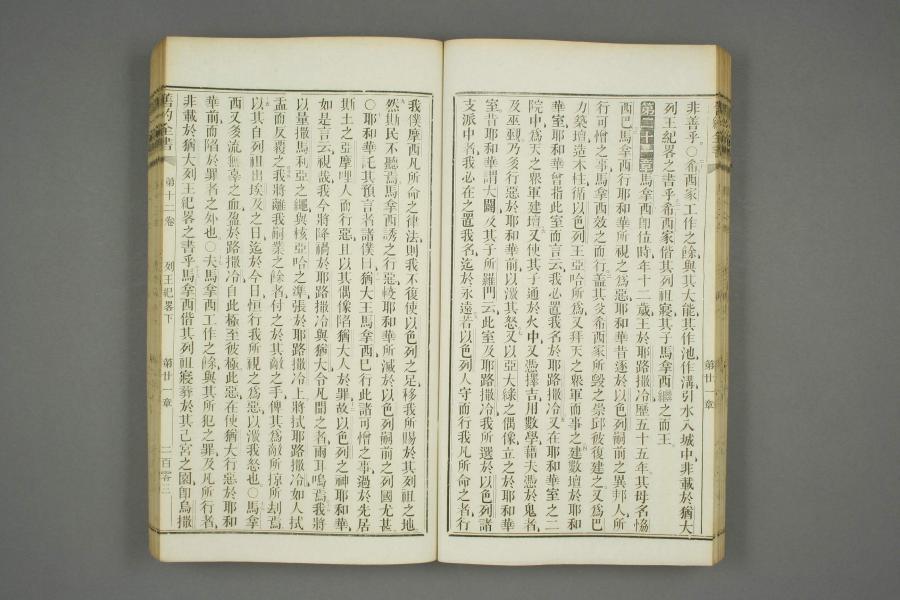 非善乎○希西家工作之餘與其大能其作池作溝引水入城中非載於猶大
列王紀畧之書乎希西家偕其列祖寢其子馬拿西繼之而王
第二十一章馬拿西卽位時年十二歲王於耶路撒冷歷五十五年其母名恊
西巴馬拿西行耶和華所視之爲惡耶和華昔逐於以色列嗣前之異邦人所
行可憎之事馬拿西效之而行蓋其父希西家所毀之崇邱彼復建之又爲巴
力築壇造木柱循以色列王亞哈所爲又拜天之衆軍而事之建數壇於耶和
華室耶和華曾指此室而言云我必置我名於耶路撒冷又在耶和華室之二
院中爲天之衆軍建壇又使其子通於火中又慿擇吉用數學藉夫慿於鬼者
及巫覡乃多行惡於耶和華前以激其怒又以亞大綠之偶像立之於耶和華
室昔耶和華謂大闢及其子所羅門云此室及耶路撒冷我所選於以色列諸
支派中者我必在之置我名迄於永遠若以色列人守而行我凡所命之者行
我僕摩西凡所命之律法則我不復使以色列之足移我所賜於其列祖之地
然斯民不聽焉馬拿西誘之行惡較耶和華所滅於以色列嗣前之列國尤甚
○耶和華託其預言者諸僕曰猶大王馬拿西巳行此諸可憎之事過於先居
斯土之亞摩哩人而行惡且以其偶像陷猶大人於罪故以色列之神耶和華
如是言云視哉我今將降禍於耶路撒冷與猶大令凡聞之者兩耳鳴焉我將
以量撒馬利亞之繩與核亞哈之準張於耶路撒冷上將拭耶路撒冷如人拭
盂而反覆之我將離我嗣業之餘者付之於其敵之手俾其爲敵所掠所刦焉
以其自列祖出埃及之日迄於今日恒行我所視之爲惡以激我怒也○馬拿
西又多流無辜之血盈於路撒冷自此極至彼極此惡在使猶大行惡於耶和
華前而陷於罪者之外也○夫馬拿西工作之餘與其所犯之罪及凡所行者
非載於猶大列王紀畧之書乎馬拿西偕其列祖寢葬於其己宮之園卽烏撒
舊約全書
第十二卷
列王紀畧下
第廿一章
二百零三
第廿一章